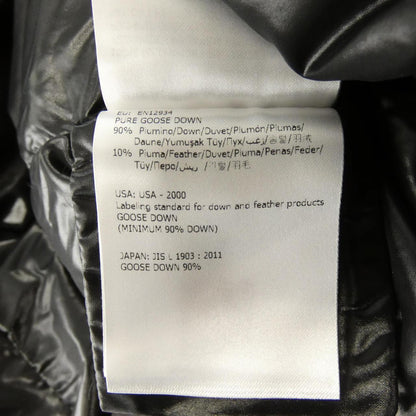 EU: EN12934
PURE GOOSE DOWN
90% Piumino/Down/Duvet/Plumón/Plumas/
Daune/Yumuşak Tüy/Пух/زغب/솜털/羽绒
10% Piuma/Feather/Duvet/Pluma/Penas/Feder/
Tüy/Перо/ريش/깃털/羽毛
USA: USA - 2000
Labeling standard for down and feather products
GOOSE DOWN
(MINIMUM 90% DOWN)
JAPAN: JIS L 1903 : 2011
GOOSE DOWN 90%